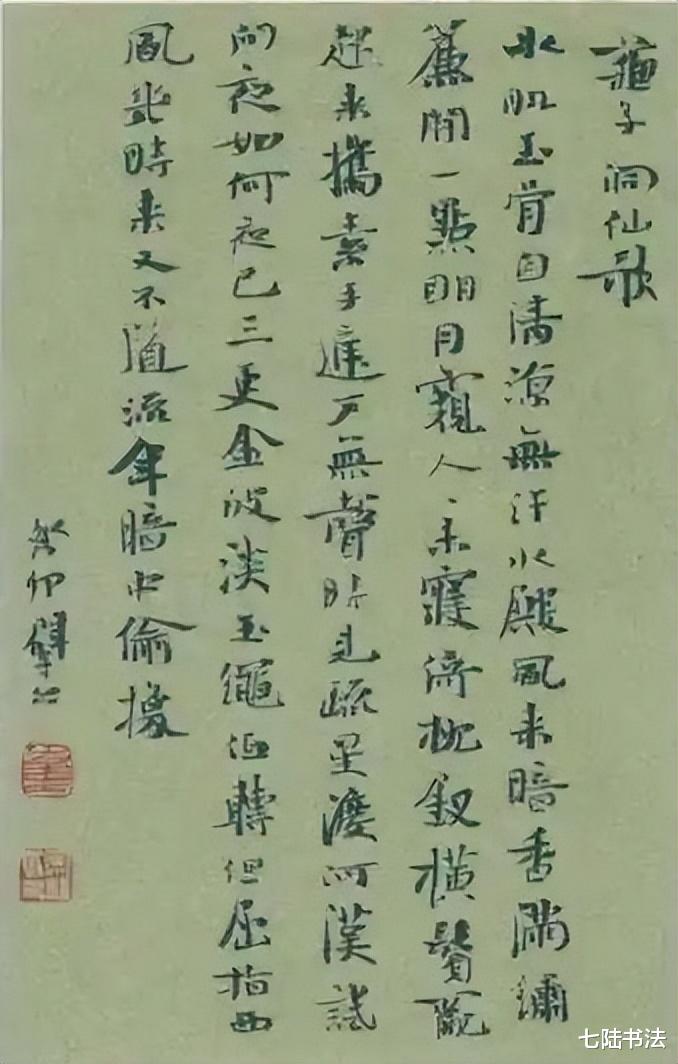 蘇子洞仙歌
冰肌玉骨自清涼無汗水殿風來暗香滿繡
簾開一點明月窺人人未寢欹枕釵橫鬢亂
起來攜素手庭戶無聲時見疏星渡河漢試
問夜如何夜已三更金波淡玉繩低轉但屈指西
風幾時來又不道流年暗中偷換
癸卯
七陆书法